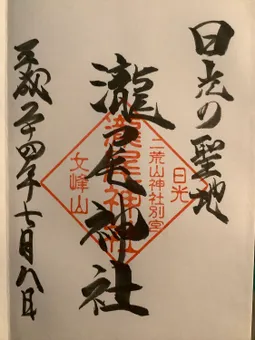 日光の聖地
日光
二荒山神社別宮
瀧尾神社
瀧尾神社
女峰山
平成二十四年七月八日